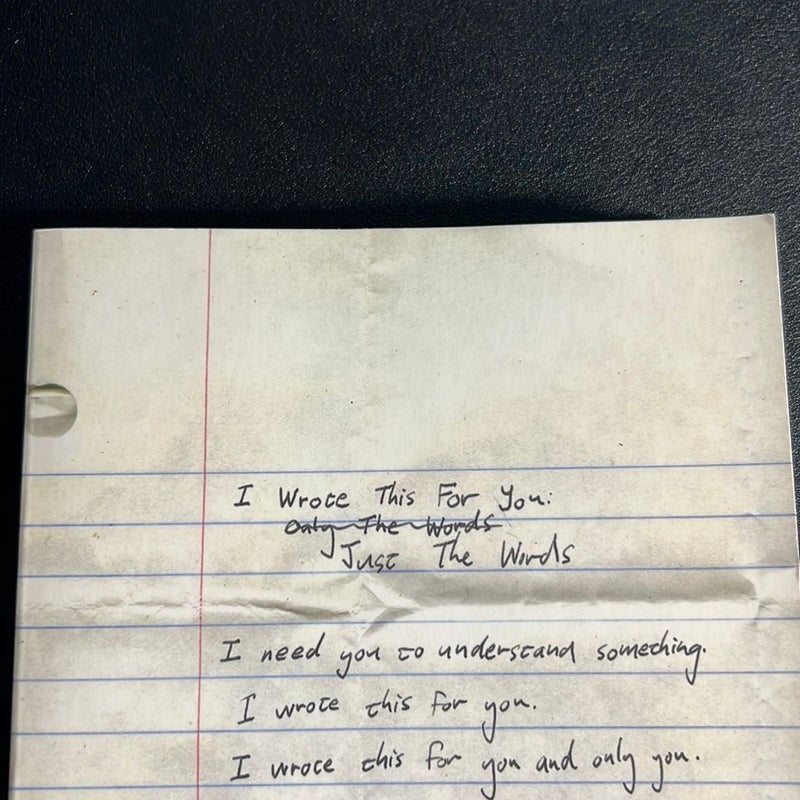 I Wrote This For You:
Only The Words
Just The Words
I need you to understand something.
I wrote this for you.
I wrote this for you and only you.